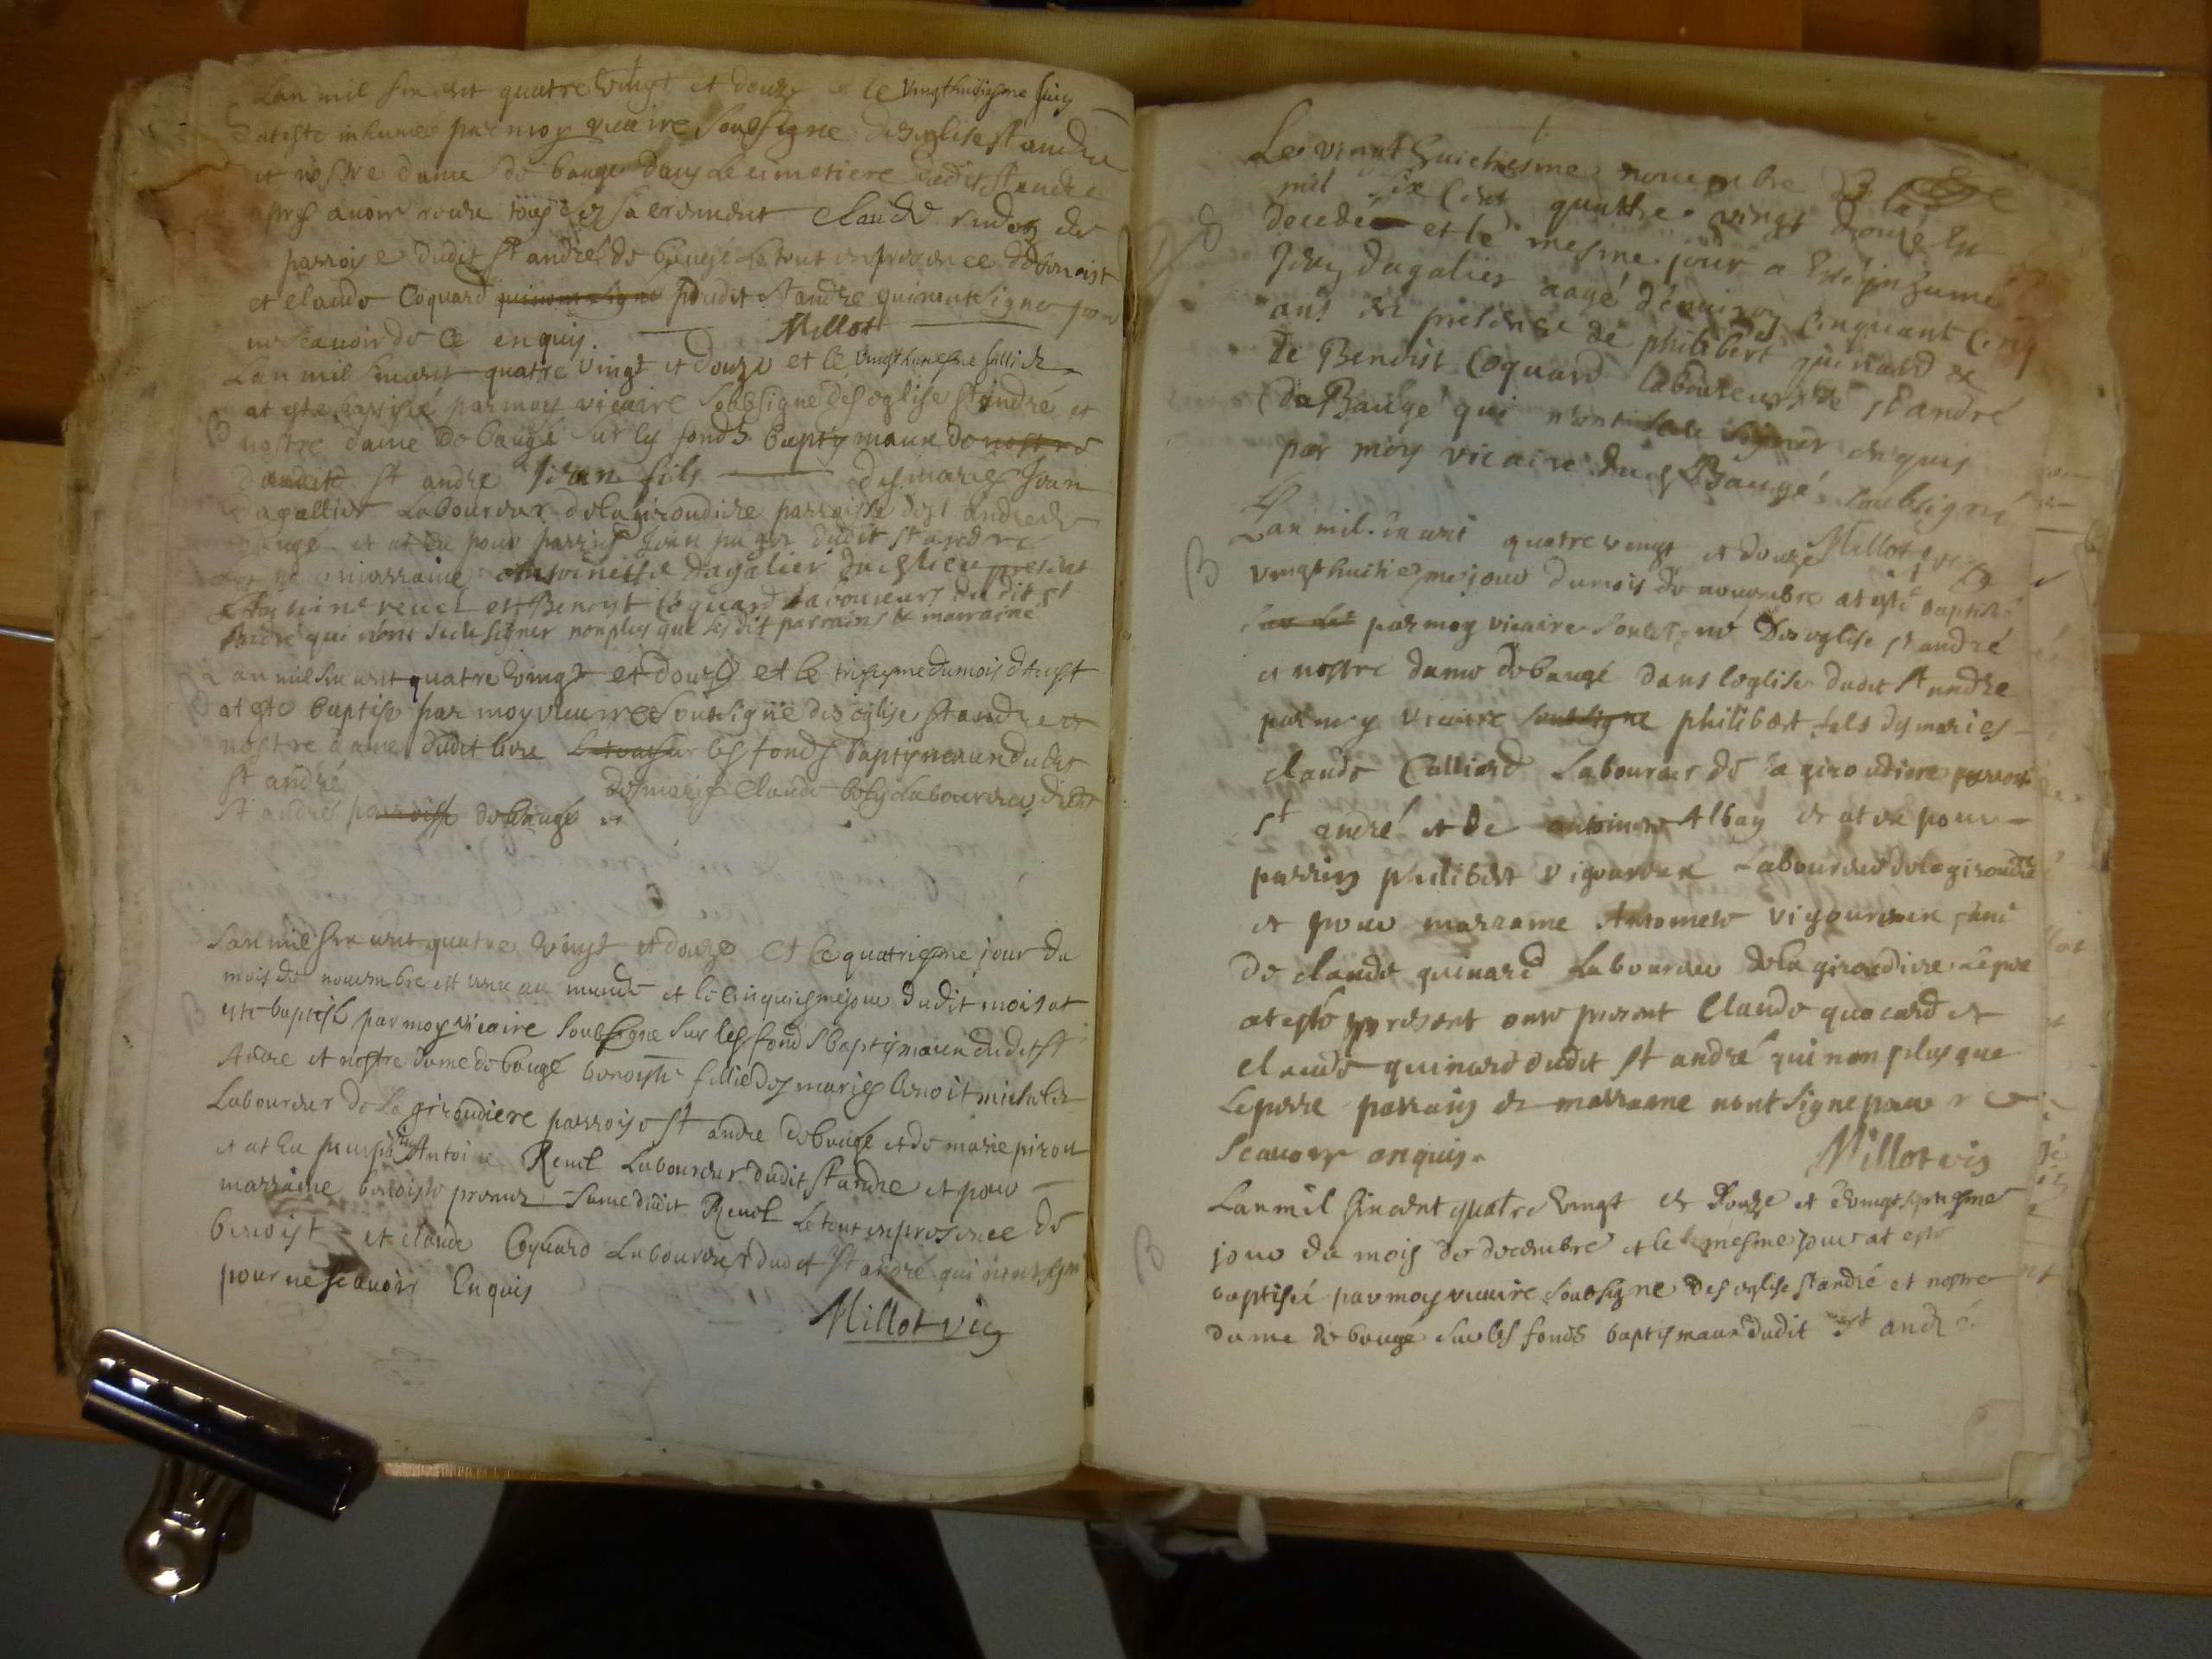 Lan mil six cent quatre vingt et douze et le vingthuitiesme juin
at este inhumée par moy vicaire soubsigne des eglise st andre
et nostre dame de bauge dans le cimetiere dudit st andre
apres avoir receu tous ses sacrement claude
parroise dudit st andre de baugé le tout en presence de benoist
et claude Coquard quinont signe dudit st andre quinont signer pour
ne scavoir de ce enquis. Millot
Lan mil six cent quatre vingt et douze et le
at esté baptisé par moy vicaire soubsigné des eglise st andré et
nostre dame de baugé sur les fonds baptismaux de nostre
dudit st andre Jean fils des maries Jean
dagallier Laboureur de la giroudiere parroisse de st andre de
bauge et at eu pour parrin Jean dudit st andre
et pour marraine Antoinette dagalier dudit lieu presents
Antoine revel et Benoyt Coquard Laboureurs du dit st
André qui n'ont sceu signer non plus que les dit parrains & marraine
Lan mil six cent quatre vingt et douze et le dumois daust
at esté baptise par moy vicaire soubsigné des eglise st andre et
nostre dame dudit lieu sur les fonds baptismaux dudit
st andré des maries Claude Laboureur dudit
st andré parroisse de baugé et
Lan mil six cent quatre vingt et douze et le quatriesme jour du
mois de novembre est venu au monde et le cinquiesme jour dudit mois at
este baptisé par moy vicaire soubsigne sur les fonds baptismaux dudit st
Andre et nostre dame de baugé benoiste fillie des maries benoit
Laboureur de La giroudiere parroise st andre de baugé et de marie
et at eu pour parrin Antoine Revel Laboureur dudit st andre et pour
marraine benoiste femme dudit Revel Le tout en presence de
benoist et claude Coquard Laboureur dudit st andré qui n'ont signe
pour ne scavoir Enquis
Millot vic
Le vingt huictiesme novembre
mil six Cent quattre vingt douze est
decede et le mesme jour a Esté inhumé
Jean dagalier aagé d'environ cinquant cinq
ans en presence de philibert quinard et
de Benoist Coquard laboureurs de st andré
de Baugé qui n'ont sceu signer enquis
par moy vicaire dudit Baugé soubsigné
Millot vic
Lan mil six cent quatre vingt et douze
vingthuitiesme jour du mois de novembre at esté baptisé
par moy vicaire soubsigné des eglise st andré
et nostre dame de baugé dans leglise dudit st andre
par moy vicaire soubsigne philibert fils des maries
claude Calliard Laboureur de la giroudiere parroise
st andré et de antoinette Albay et at eu pour
parrin philibert vigoureux Laboureur de la giroudiere
et pour marraine Antoinette vigoureux femme
de claude quinard Laboureur de la giroudiere Le pere
at esté present present Claude quocard et
claude quinard dudit st andré qui non plus que
Le pere parrain et marraine n'ont signe pour ne
scavoir enquis.
Millot vic
Lan mil six cent quatre vingt et douze et le vingt septiesme
jour du mois de decembre et le mesme jour at esté
baptisé par moy vicaire soubsigne des eglise st andré et nostre
dame de baugé sur les fonds baptismaux dudit st andré